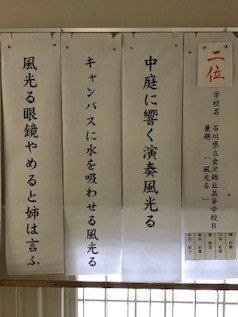 二位
学校名
石川県立金沢錦丘高等学校B
兼題 「風光る」
中庭に響く演奏風光る
キャンバスに水を吸わせる風光る
風光る眼鏡やめると姉は言ふ